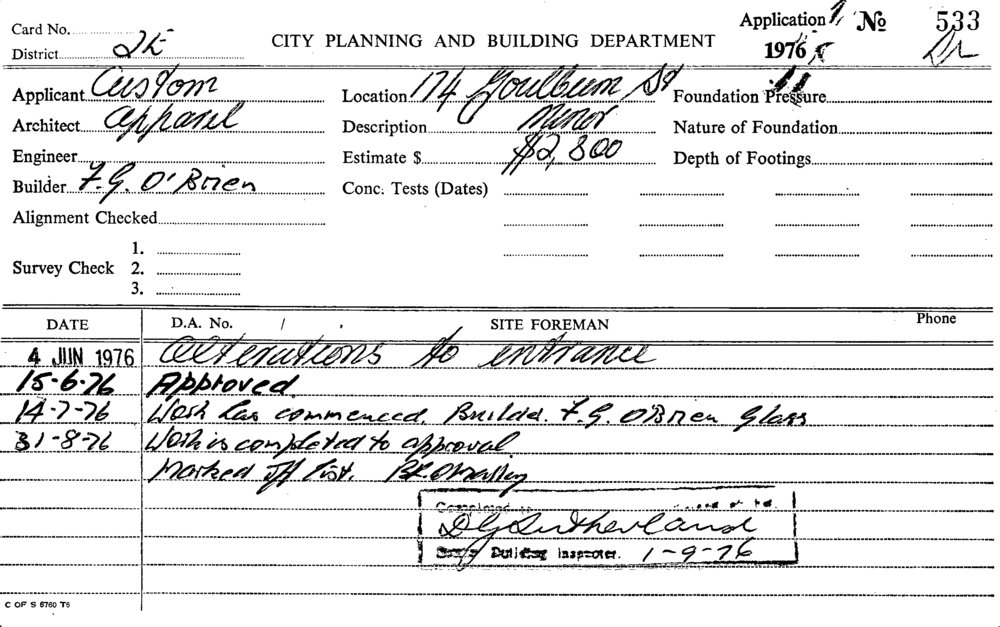 Card No.
Application No 533
District 2E
CITY PLANNING AND BUILDING DEPARTMENT
1976
Applicant Custom
Location 174 Goulburn St
Foundation Pressure
Architect Apparel
Description Minor
Nature of Foundation
Engineer
Estimate $ $2,800
Depth of Footings
Builder F.G. O'Brien
Conc. Tests (Dates)
Alignment Checked
1.
Survey Check 2.
3.
DATE D.A. No. / SITE FOREMAN Phone
4 JUN 1976 Alterations to entrance
15-6-76 Approved.
14-7-76 Work has commenced. Builder. F.G. O'Brien Glass
31-8-76 Work is completed to approval
Marked off list. B.R. O'Malley
Completed to
D G Sutherland
Building Inspector. 1-9-76
C OF S 6760 T6